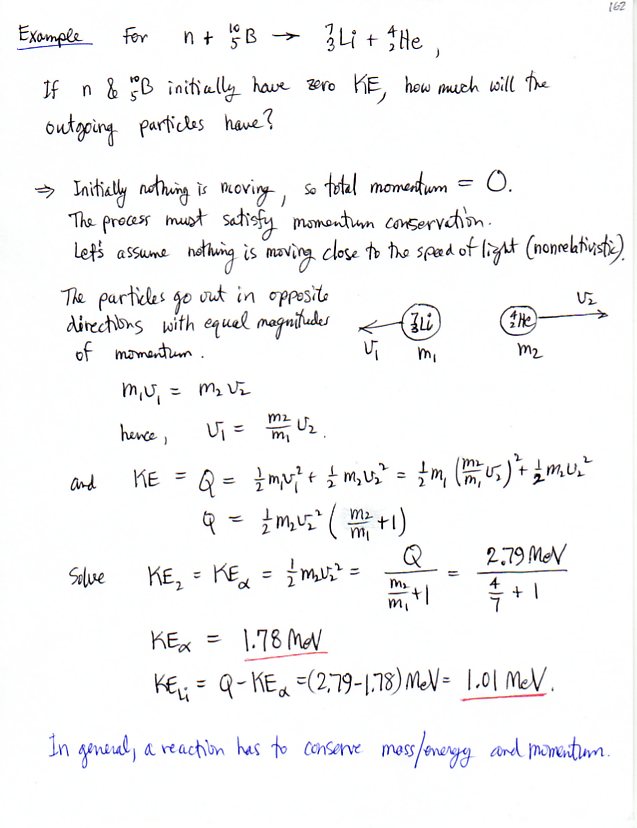 162
Example For n + ¹⁰₅B → ⁷₃Li + ⁴₂He,
If n & ¹⁰₅B initially have zero KE, how much will the
outgoing particles have?
⇒ Initially nothing is moving, so total momentum = 0.
The process must satisfy momentum conservation.
Let's assume nothing is moving close to the speed of light (nonrelativistic).
The particles go out in opposite
directions with equal magnitudes
of momentum.
v₁ ⁷₃Li m₁ ⁴₂He m₂ v₂
m₁v₁ = m₂v₂
hence, v₁ = m₂/m₁ v₂.
and KE = Q = ½m₁v₁² + ½m₂v₂² = ½m₁(m₂/m₁ v₂)² + ½m₂v₂²
Q = ½m₂v₂²(m₂/m₁ + 1)
Solve KE₂ = KEα = ½m₂v₂² = Q/(m₂/m₁ + 1) = 2.79 MeV/(4/7 + 1)
KEα = 1.78 MeV
KE_Li = Q - KEα = (2.79-1.78) MeV = 1.01 MeV.
In general, a reaction has to conserve mass/energy and momentum.